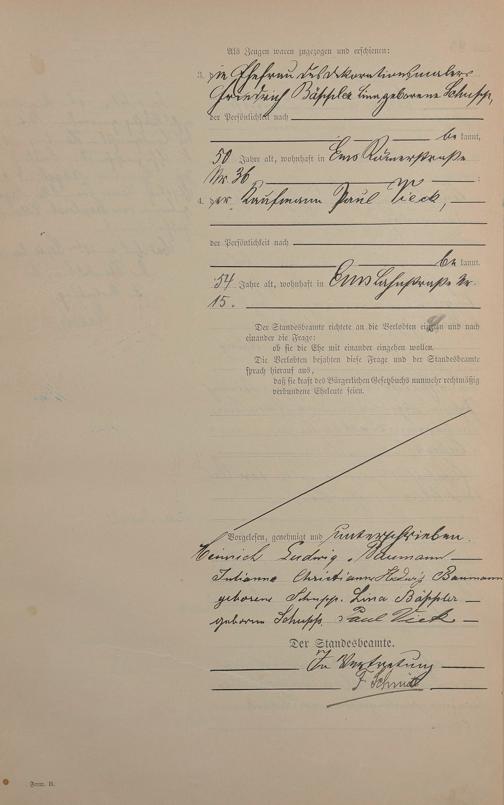 Als Zeugen waren zugezogen und erschienen:
3. die Ehefrau des Dekorationsmalers
Friedrich Bäppler Lina geborene Schupp,
der Persönlichkeit nach
be kannt,
50 Jahre alt, wohnhaft in Ems Römerstraße
Nr. 36 ;
4. der Kaufmann Paul Vieck,
der Persönlichkeit nach
be kannt,
54 Jahre alt, wohnhaft in Ems Lahnstraße Nr.
15.
Der Standesbeamte richtete an die Verlobten einzeln und nach
einander die Frage:
ob sie die Ehe mit einander eingehen wollen.
Die Verlobten bejahten diese Frage und der Standesbeamte
sprach hierauf aus,
daß sie kraft des Bürgerlichen Gesetzbuchs nunmehr rechtmäßig
verbundene Eheleute seien.
Vorgelesen, genehmigt und unterschrieben.
Heinrich Ludwig Baumann
Julianna Christiane Hedwig Baumann
geborene Schupp. Lina Bäppler
geborne Schupp Paul Vieck
Der Standesbeamte.
In Vertretung
F. Schmidt
Form. B.